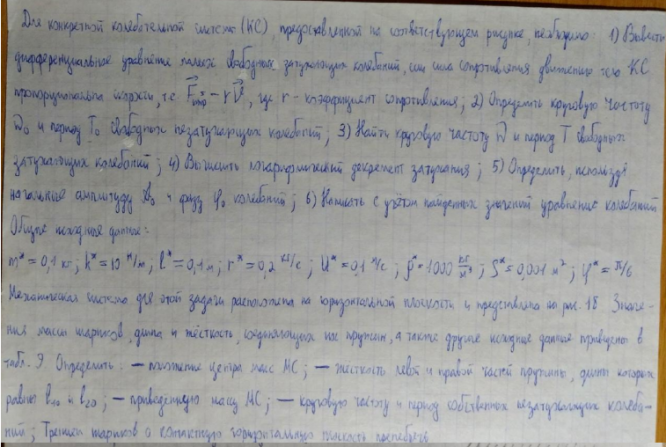 Для конкретной колебательной системы (КС), представленной на соответствующем рисунке, необходимо: 1) Вывести
дифференциальное уравнение малых свободных затухающих колебаний, если сила сопротивления движению тело КС
пропорциональна скорости, т.е. F = - r V, где r - коэффициент сопротивления; 2) Определить круговую частоту
ω₀ и период T₀ свободных незатухающих колебаний; 3) Найти круговую частоту ω и период T свободных
затухающих колебаний; 4) Вычислить логарифмический декремент затухания; 5) Определить, используя
начальные амплитуду и фазу φ₀ колебаний; 6) Написать с учётом найденных значений уравнение колебаний
Общие исходные данные:
m* = 0,1 кг; k* = 10 Н/м; l* = 0,1 м; r* = 0,2 кг/с; U* = 0,1 м/с; ρ* = 1000 кг/м³; S* = 0,001 м²; φ* = π/6
Механическая система для этой задачи расположена на горизонтальной плоскости и представлена на рис. 18. Значе-
ния массы шариков, длина и жёсткость, соединяющих их пружин, а также другие исходные данные приведены в
табл. 9. Определить: - положение центра масс МС; - жесткость левой и правой частей пружины, длины которых
равны l₁₀ и l₂₀; - приведенную массу МС; - круговую частоту и период собственных незатухающих колеба-
ний; Трением шариков о контактную горизонтальную плоскость пренебречь